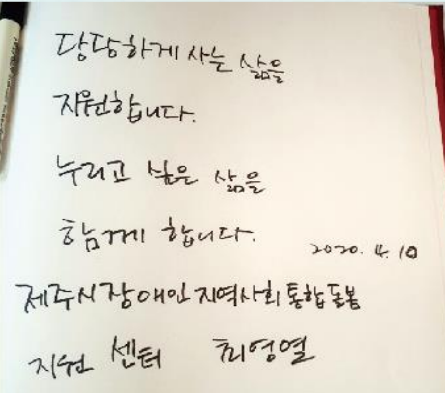 당당하게 사는 삶을
지원합니다.
누리고 싶은 삶을
함께 합니다.
2020. 4. 10
제주시장애인 지역사회 통합돌봄
지원 센터 최영열